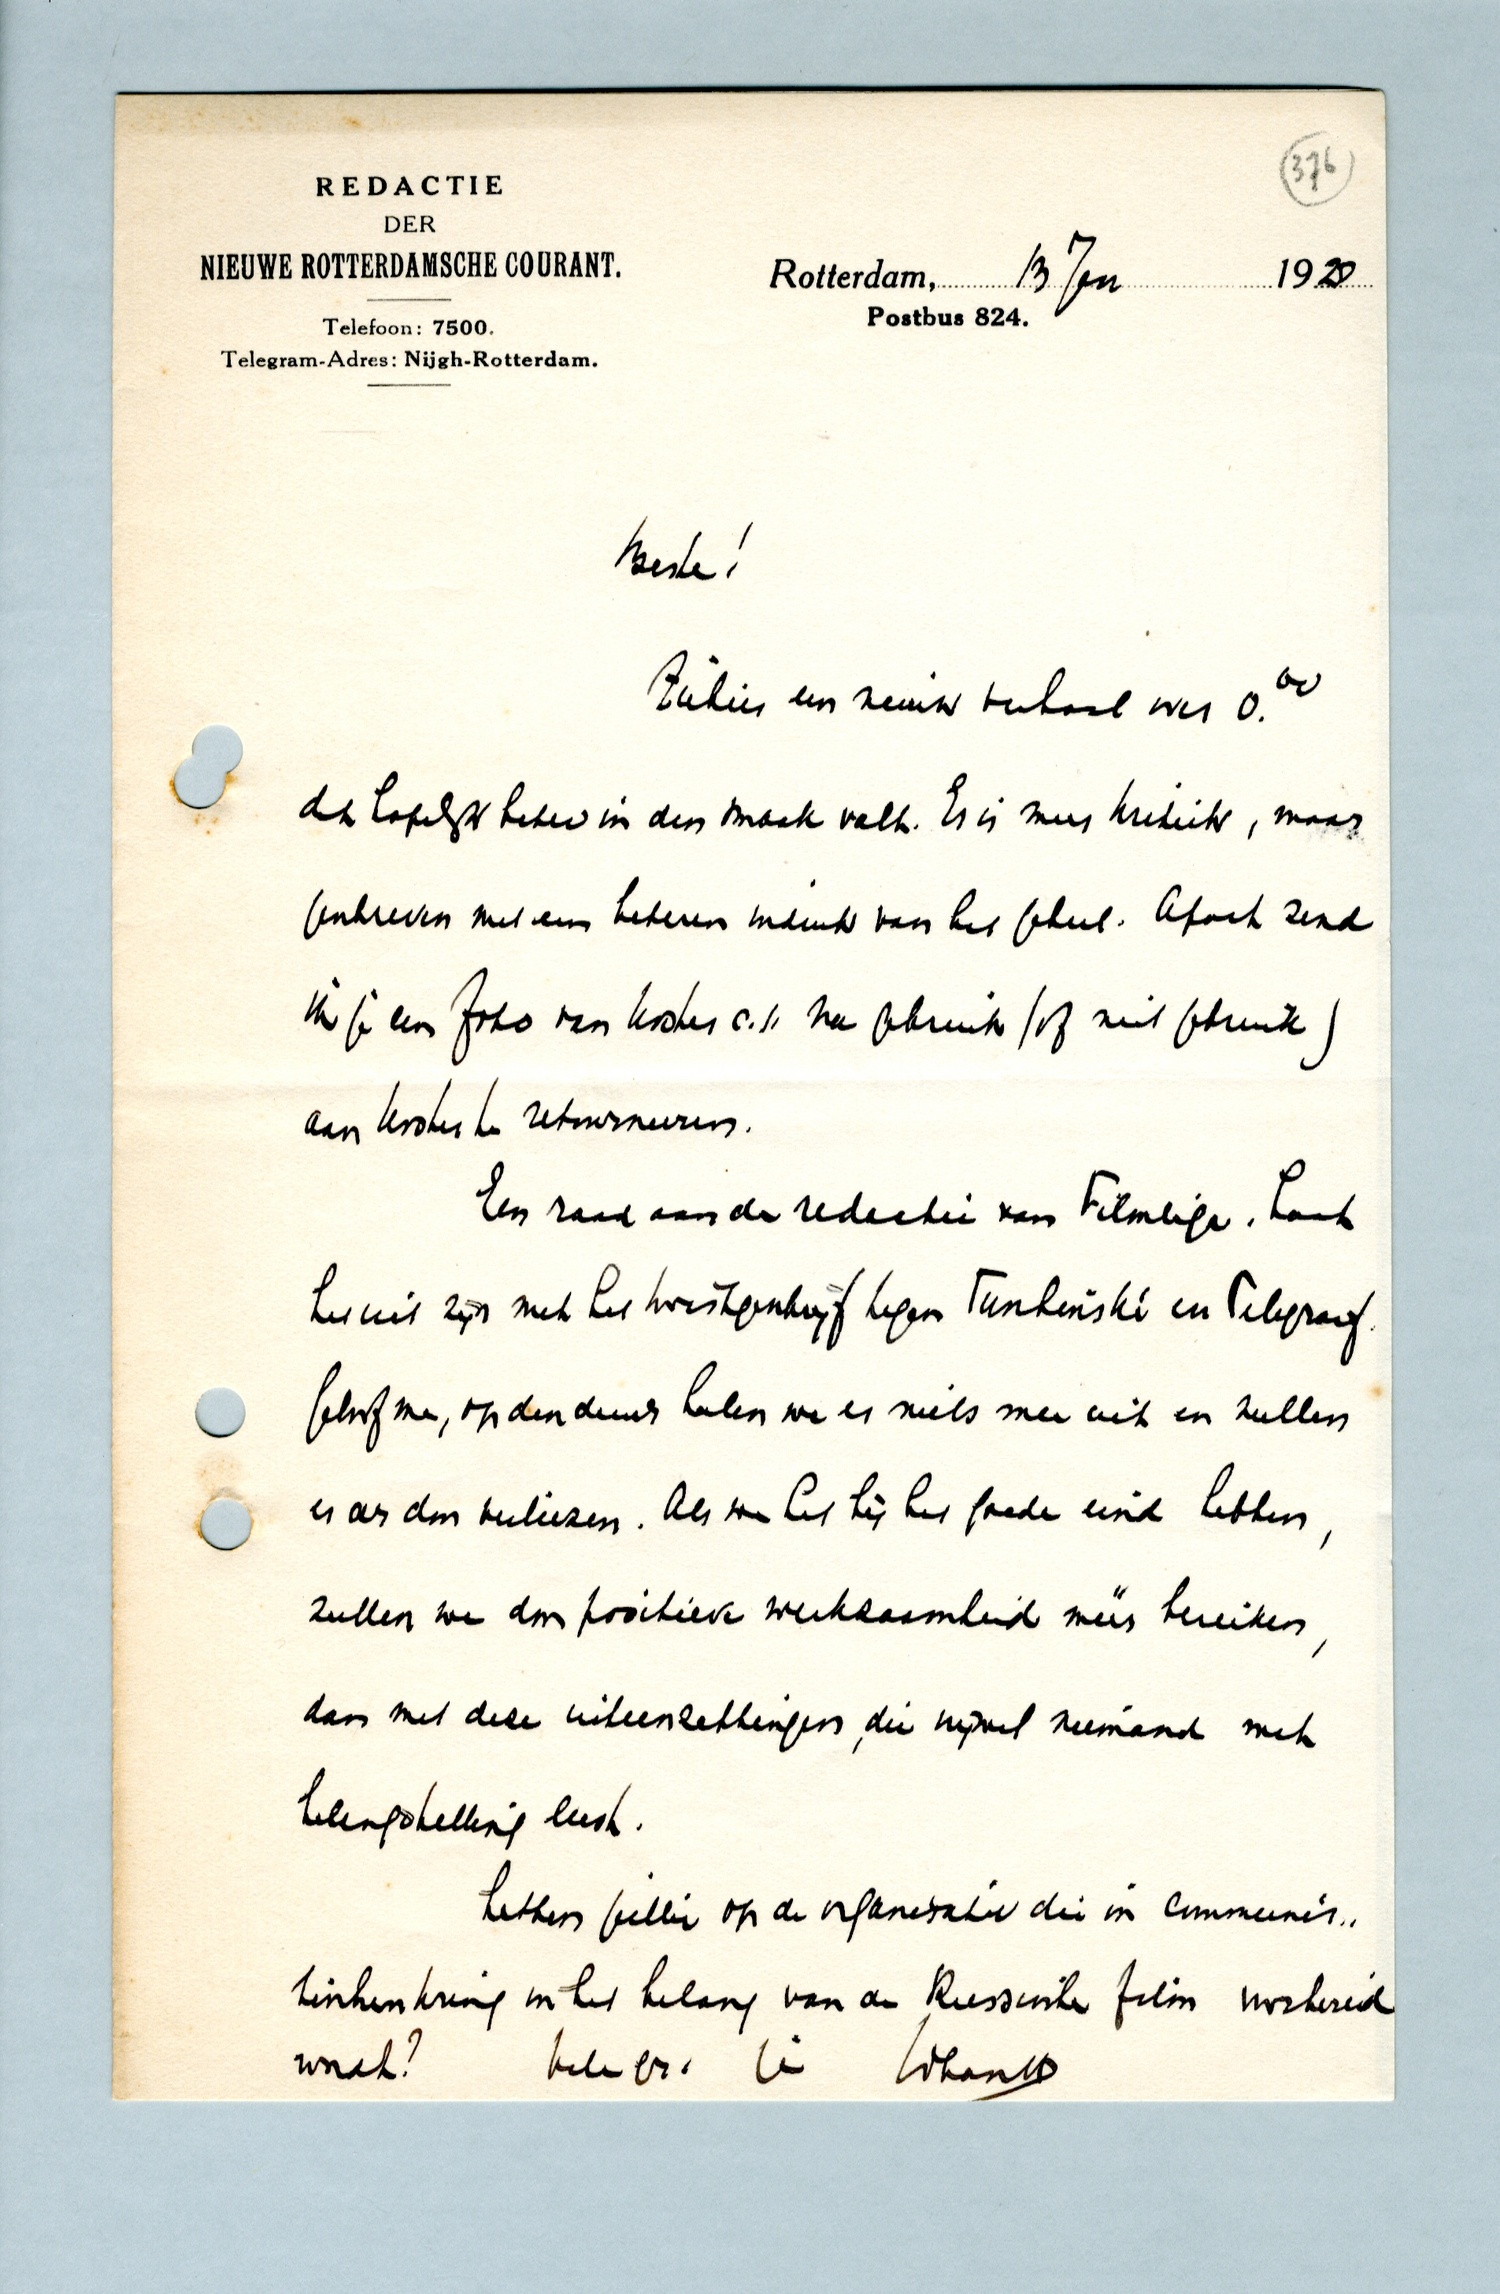 376
REDACTIE
DER
NIEUWE ROTTERDAMSCHE COURANT.
Telefoon: 7500.
Telegram-Adres: Nijgh-Rotterdam.
Rotterdam, 13 Jan 19
Postbus 824.
Beste!
Ziehier een nieuw verhaal over
dat hopelijk beter in den smaak valt. Er is meer kritiek, maar
geschreven met een beteren indruk van het geheel. Apart zend
ik je een foto van Koster c.s. na gebruik (of niet gebruik)
aan Koster te retourneeren.
Een raad aan de redactie van Filmliga. Laat
het uit zijn met het tegen Tuschinski en Telegraaf.
Geloof me, op den duur halen we er niets mee uit en zullen
er als dan verliezen. Als we het bij het goede eind hebben,
zullen we door positieve werkzaamheid méér bereiken,
dan met deze uiteenzettingen, die vrijwel niemand met
belangstelling leest.
Letten jullie op de organisatie die in communis-
tischen kring in het belang van de Russische film voorbereid
wordt? vele gr. je Johan